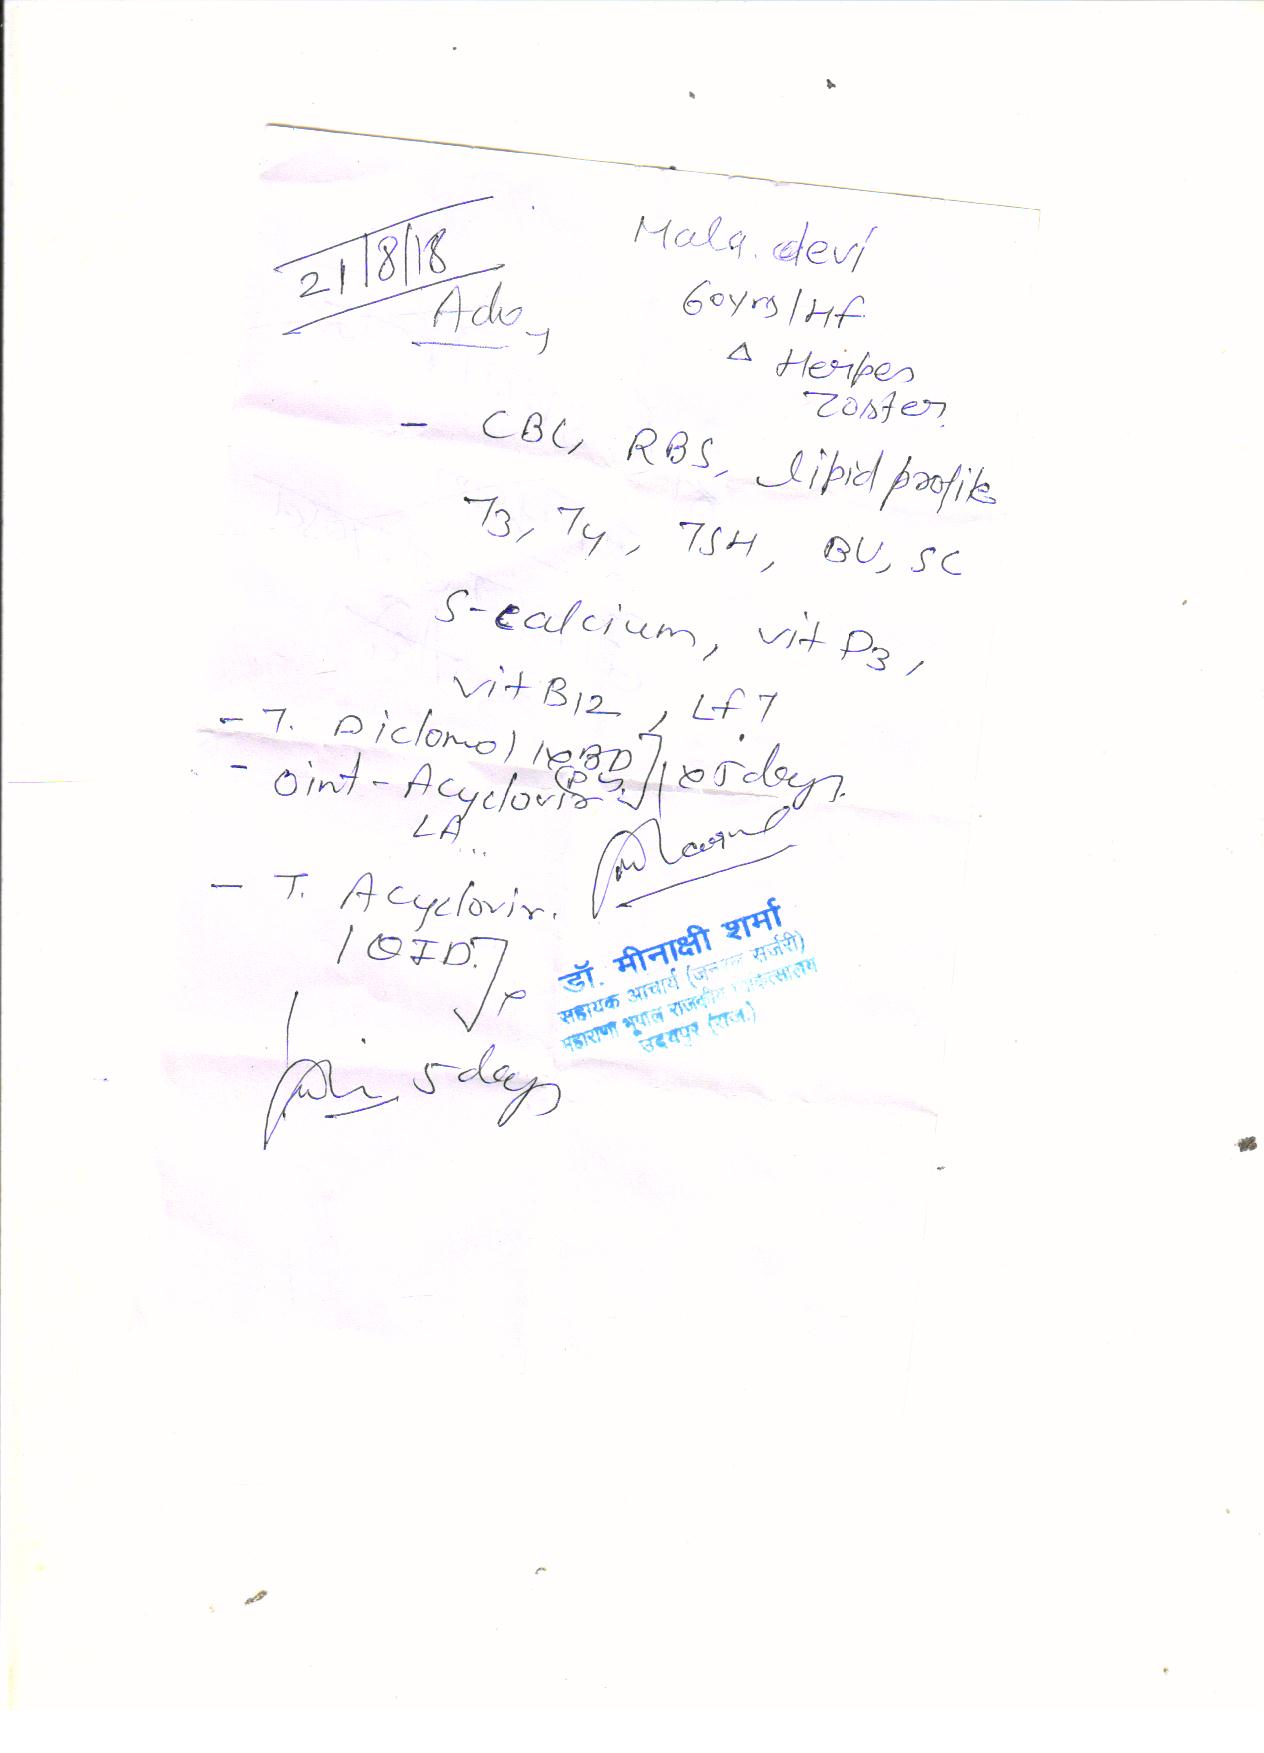 21/8/18
Mala. devi
60yrs/Hf
Adv,
Δ Herpes
Zoster
- CBC, RBS, lipid profile
T3, T4, TSH, BU, SC
S-calcium, vit D3,
vit B12, LfT
- T. Diclomol 1 x BD
- Oint - Acyclovir x 5 days.
LA
- T. Acyclovir.
1 QID. x
5 days
डॉ. मीनाक्षी शर्मा
सहायक आचार्य (जनरल सर्जरी)
महाराणा भूपाल राजकीय चिकित्सालय
उदयपुर (राज.)